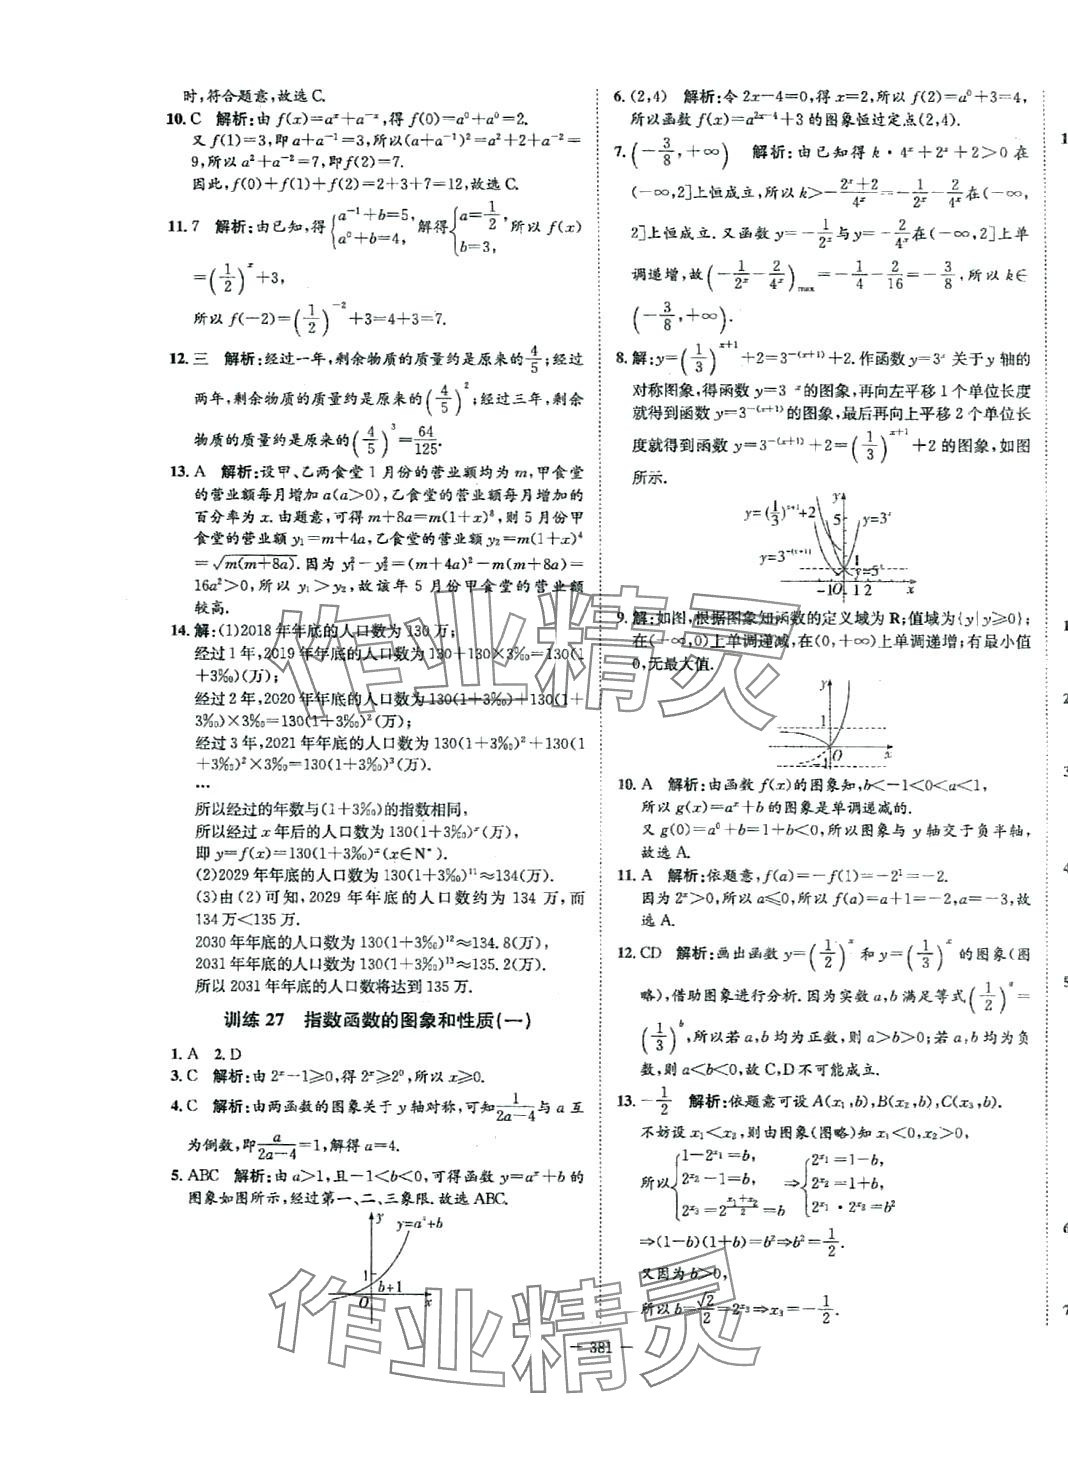 时,符合题意,故选C.
10. C 解析:由 f(x)=aˣ+a⁻ˣ,得 f(0)=a⁰+a⁰=2.
又 f(1)=3,即 a+a⁻¹=3,所以(a+a⁻¹)²=a²+2+a⁻²=
9,所以 a²+a⁻²=7,即 f(2)=7.
因此,f(0)+f(1)+f(2)=2+3+7=12,故选C.
11. 7 解析:由已知,得{a⁻¹+b=5, a⁰+b=4, 解得{a=1/2, b=3, 所以 f(x)
=(1/2)ˣ+3,
所以 f(-2)=(1/2)⁻²+3=4+3=7.
12. 三 解析:经过一年,剩余物质的质量约是原来的4/5;经过
两年,剩余物质的质量约是原来的(4/5)²;经过三年,剩余
物质的质量约是原来的(4/5)³=64/125.
13. A 解析:设甲、乙两食堂1月份的营业额均为 m,甲食堂
的营业额每月增加 a(a>0),乙食堂的营业额每月增加的
百分率为 x.由题意,可得 m+8a=m(1+x)⁸,则5月份甲
食堂的营业额 y₁=m+4a,乙食堂的营业额 y₂=m(1+x)⁴
=√(m(m+8a)).因为 y₁²-y₂²=(m+4a)²-m(m+8a)=
16a²>0,所以 y₁>y₂,故该年5月份甲食堂的营业额
较高.
14. 解:(1)2018年年底的人口数为130万;
经过1年,2019年年底的人口数为130+130×3‰=130(1
+3‰)(万);
经过2年,2020年年底的人口数为130(1+3‰)+130(1+
3‰)×3‰=130(1+3‰)²(万);
经过3年,2021年年底的人口数为130(1+3‰)²+130(1
+3‰)²×3‰=130(1+3‰)³(万).
…
所以经过的年数与(1+3‰)的指数相同,
所以经过 x 年后的人口数为130(1+3‰)ˣ(万),
即 y=f(x)=130(1+3‰)ˣ(x∈N*).
(2)2029年年底的人口数为130(1+3‰)¹¹≈134(万).
(3)由(2)可知,2029年年底的人口数约为134万,而
134万<135万.
2030年年底的人口数为130(1+3‰)¹²≈134.8(万),
2031年年底的人口数为130(1+3‰)¹³≈135.2(万),
所以2031年年底的人口数将达到135万.
训练27 指数函数的图象和性质(一)
1. A 2. D
3. C 解析:由 2ˣ-1≥0,得 2ˣ≥2⁰,所以 x≥0.
4. C 解析:由两函数的图象关于 y 轴对称,可知1/(2a-4)与 a 互
为倒数,即a/(2a-4)=1,解得 a=4.
5. ABC 解析:由 a>1,且-1<b<0,可得函数 y=aˣ+b 的
图象如图所示,经过第一、二、三象限.故选ABC.
y
y=aˣ+b
1
b+1
O x
6. (2,4) 解析:令 2x-4=0,得 x=2,所以 f(2)=a⁰+3=4,
所以函数 f(x)=a²ˣ⁻⁴+3 的图象恒过定点(2,4).
7. (-3/8,+∞) 解析:由已知得 k·4ˣ+2ˣ+2>0 在
(-∞,2]上恒成立,所以 k>-(2ˣ+2)/4ˣ=-1/2ˣ-2/4ˣ在(-∞,
2]上恒成立.又函数 y=-1/2ˣ与 y=-2/4ˣ在(-∞,2]上单
调递增,故(-1/2ˣ-2/4ˣ)max=-1/4-2/16=-3/8,所以 k∈
(-3/8,+∞).
8. 解:y=(1/3)ˣ⁺¹+2=3⁻⁽ˣ⁺¹⁾+2.作函数 y=3ˣ 关于 y 轴的
对称图象,得函数 y=3⁻ˣ的图象,再向左平移1个单位长度
就得到函数 y=3⁻⁽ˣ⁺¹⁾的图象,最后再向上平移2个单位长
度就得到函数 y=3⁻⁽ˣ⁺¹⁾+2=(1/3)ˣ⁺¹+2 的图象,如图
所示.
y=(1/3)ˣ⁺¹+2
y
5
y=3ˣ
y=3⁻⁽ˣ⁺¹⁾
1
-1 O 1 2 x
9. 解:如图,根据图象知函数的定义域为R;值域为{y|y≥0};
在(-∞,0)上单调递减,在(0,+∞)上单调递增;有最小值
0,无最大值.
y
1
O x
-1
10. A 解析:由函数 f(x)的图象知,b<-1<0<a<1,
所以 g(x)=aˣ+b 的图象是单调递减的.
又 g(0)=a⁰+b=1+b<0,所以图象与 y 轴交于负半轴,
故选A.
11. A 解析:依题意,f(a)=-f(1)=-2¹=-2.
因为 2ˣ>0,所以 a≤0,所以 f(a)=a+1=-2,a=-3,故
选A.
12. CD 解析:画出函数 y=(1/2)ˣ 和 y=(1/3)ˣ 的图象(图
略),借助图象进行分析.因为实数 a,b 满足等式(1/2)ᵃ=
(1/3)ᵇ,所以若 a,b 均为正数,则 a>b>0;若 a,b 均为负
数,则 a<b<0,故C,D不可能成立.
13. -1/2 解析:依题意可设 A(x₁,b),B(x₂,b),C(x₃,b).
不妨设 x₁<x₂,则由图象(图略)知 x₁<0,x₂>0,
所以{1-2^x₁=b, 2^x₂-1=b, 2^x₃=2^((x₁+x₂)/2)=b ⇒{2^x₁=1-b, 2^x₂=1+b, 2^x₁·2^x₂=b²
⇒(1-b)(1+b)=b²⇒b²=1/2.
又因为 b>0,
所以 b=√2/2=2^x₃⇒x₃=-1/2.
— 381 —
作业精灵
作业精灵